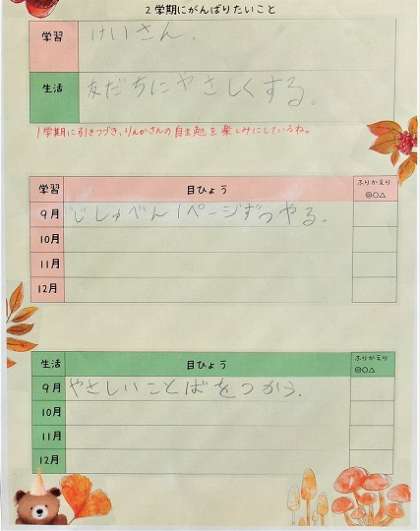 2学期にがんばりたいこと
学習 けいさん.
生活 友だちにやさしくする。
1学期に引きつづき、りんかさんの自主勉を楽しみにしているね。
学習 目ひょう ふりかえり
◎○△
9月 じしゅべん1ページずつやる.
10月
11月
12月
生活 目ひょう ふりかえり
◎○△
9月 やさしいことばをつかう.
10月
11月
12月